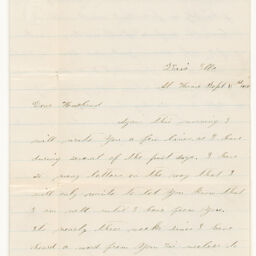 Dear Husband
Again this morning I
will write you a few lines as I have
during several of the past days. I have
so many letters on the way that I
will only write to let you know that
I am well until I hear from you.
It nearly three weeks since I have
heard a word from you in